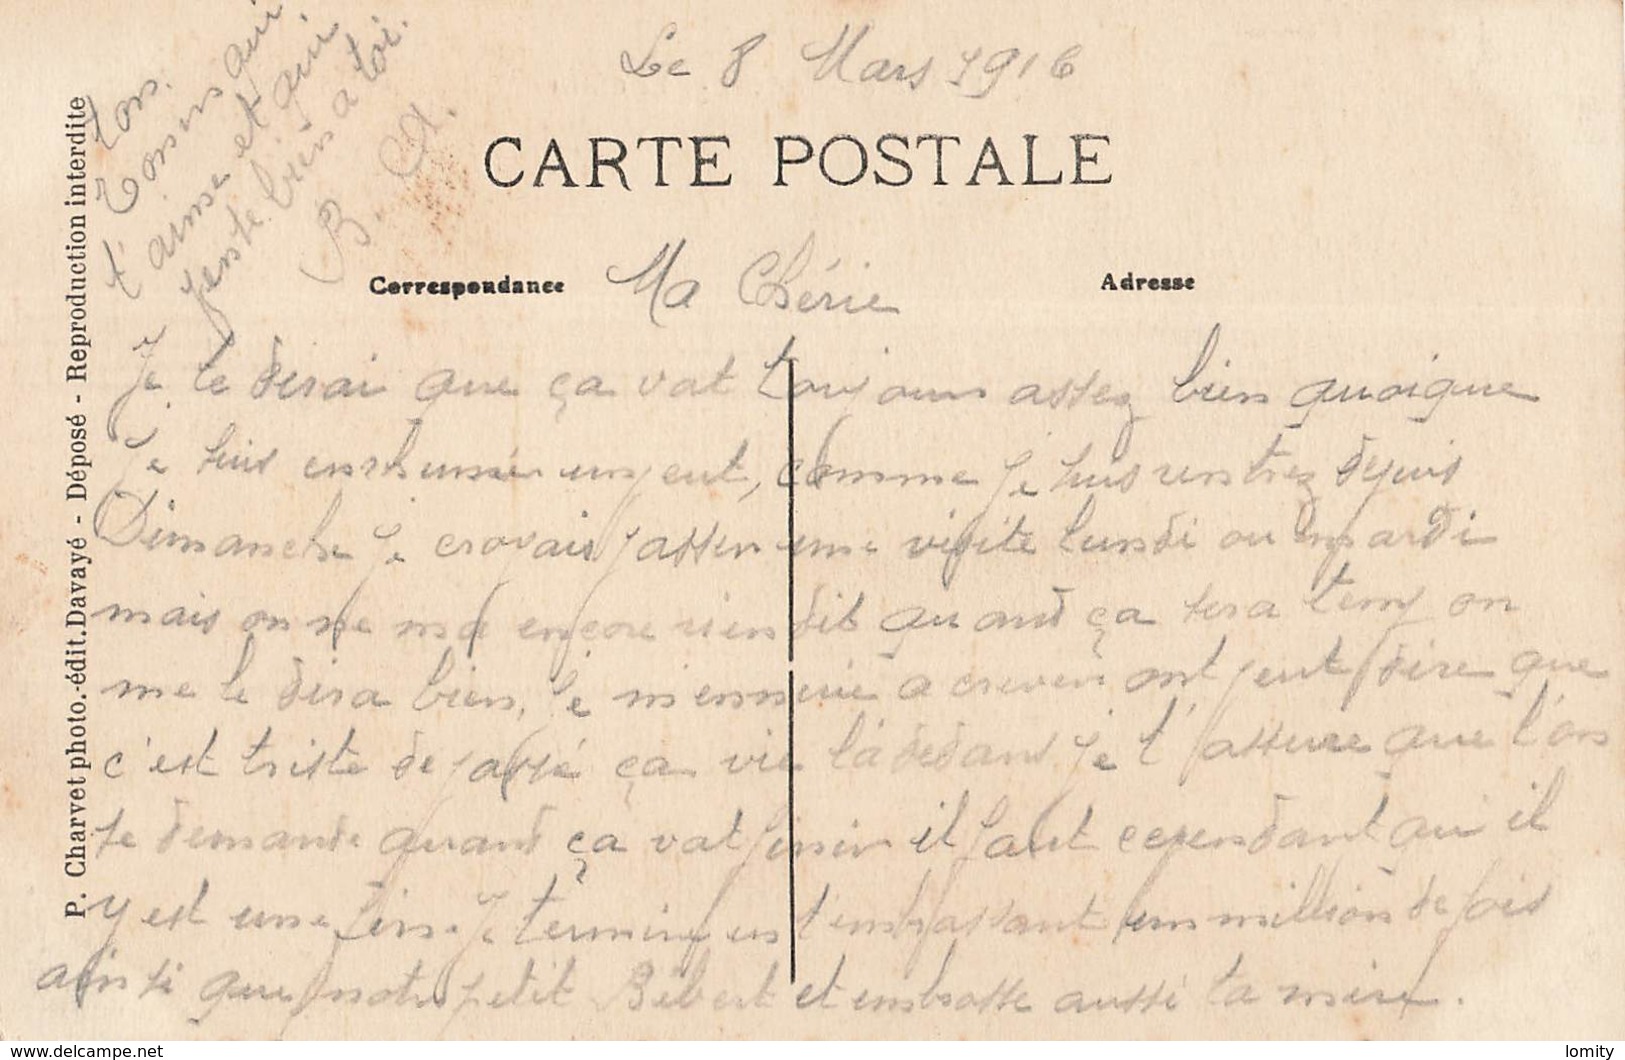 Le 8 Mars 1916
CARTE POSTALE
Correspondance
Adresse
Ma Chérie
Je te dirai que ça vat toujours assez bien quoique
je suis enrhumé un peut, comme je suis rentrez depuis
Dimanche je croyais passer une visite lundi ou mardi
mais on ne ma encore rien dit quand ça sera temp on
me le dira bien, je m'ennuie a crever ont peut dire que
c'est triste de passé ça vie là dedans je t'assure que l'on
se demande quand ça vat finir il faut cependant qu'il
y est une fin. Je termine en t'embrassant un million de fois
ainsi que notre petit Bébert et embrasse aussi ta mère.
ton
t'aime et qui
pense bien a toi.
B. A.
P. Charvet photo.-édit.Davayé - Déposé - Reproduction interdite
www.delcampe.net
lomity